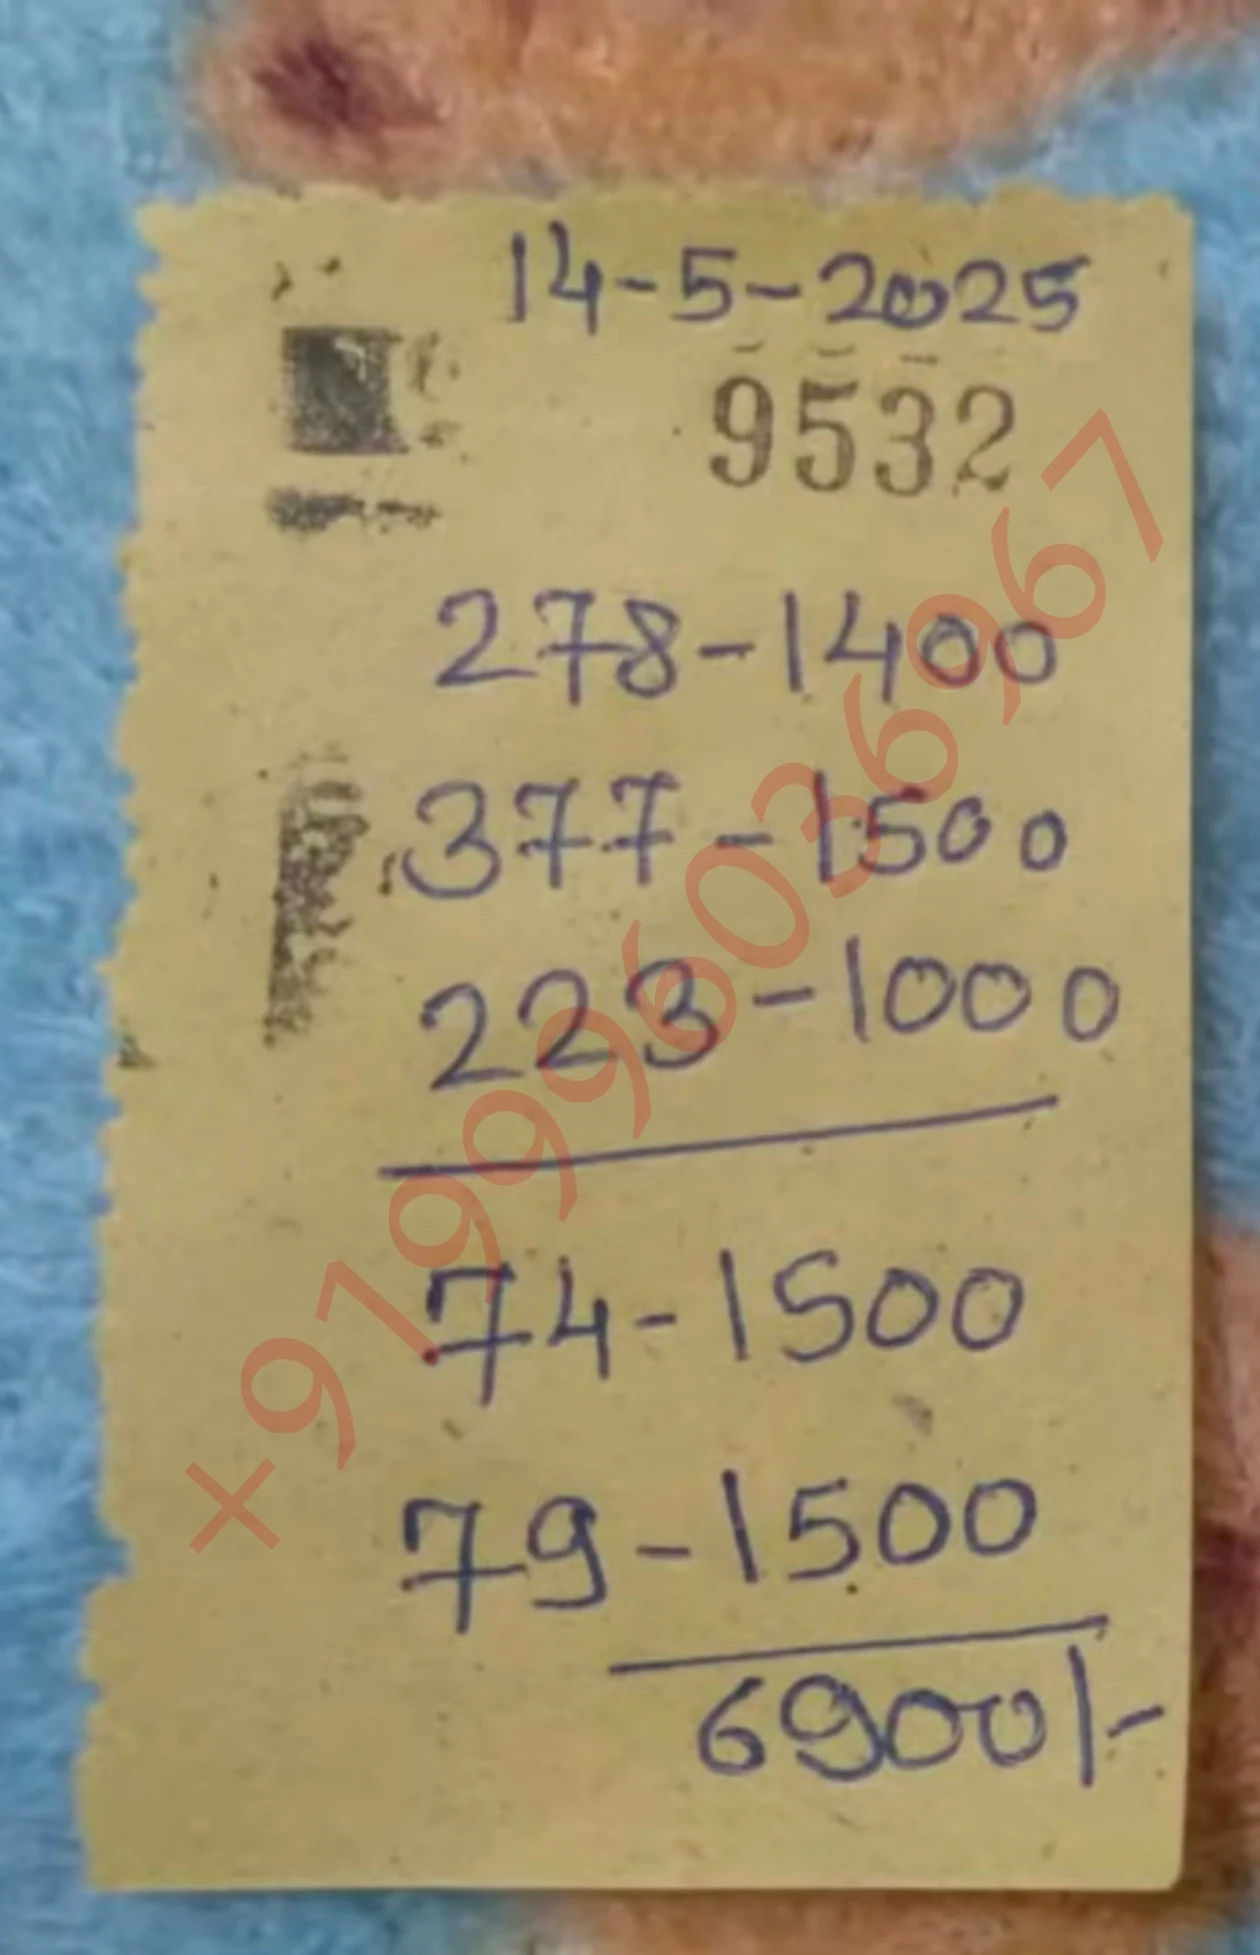 14-5-2025
9532
278-1400
377-1500
223-1000
74-1500
79-1500
6900/-
+919996036967